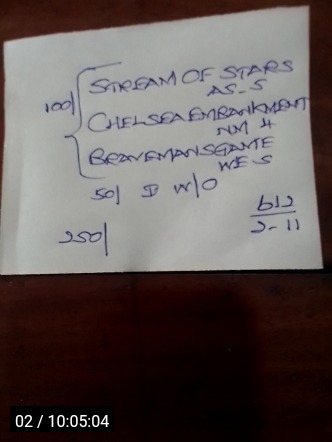 100/ STREAM OF STARS
AS-5
CHELSEA EMBANKMENT
NM 4
BRAVEMANSGAME
WE 5
50/ I W/O
250/
612
2-11
02 / 10:05:04